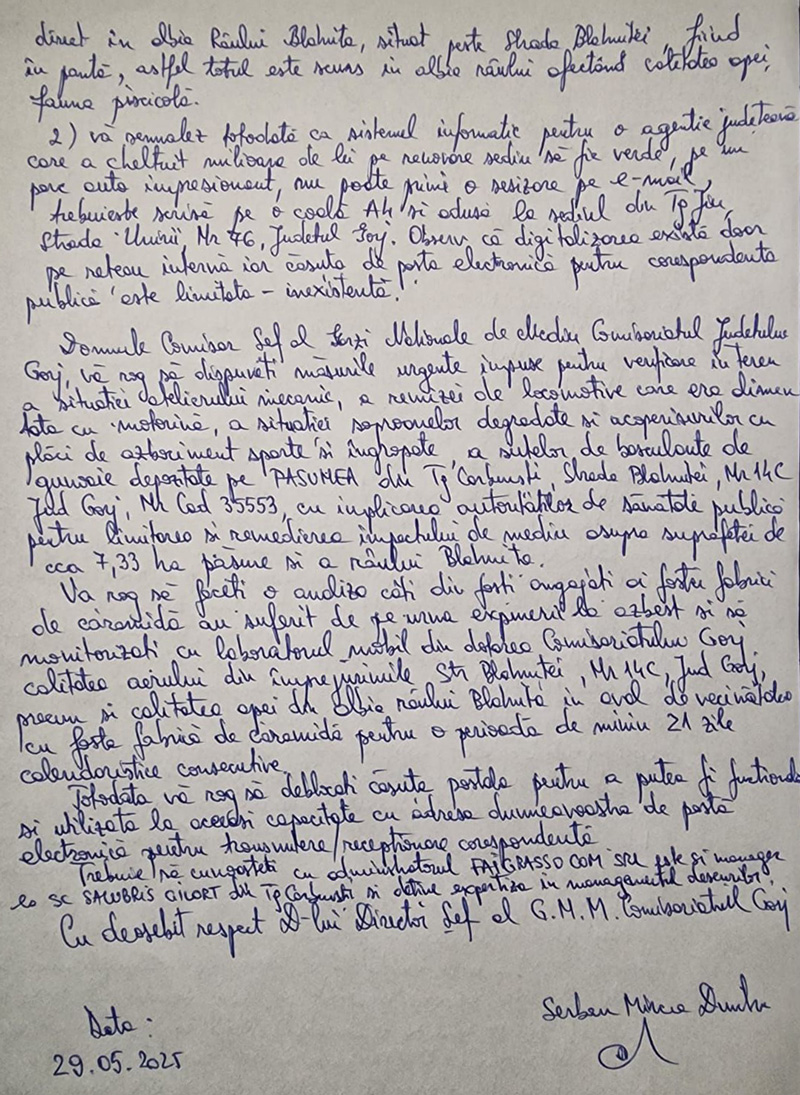 direct în albia Râului Blahnita, situat peste Strada Blahnitei, fiind
în pantă, astfel totul este scurs in albia râului afectând calitatea apei,
fauna piscicolă.
2) vă semnalez totodată ca sistemul informatic pentru o agentie județeană
care a cheltuit milioane de lei pe renovare sediu să fie verde, pe un
parc auto impresionant, nu poate primi o sesizare pe e-mail,
trebuieste scrisă pe o coală A4 si adusă la sediul din Tg Jiu,
Strada Unirii, Nr 76, Judetul Gorj. Observ că digitalizarea există doar
pe retean internă iar căsuta de posta electronică pentru corespondenta
publică este limitata - inexistentă.
Domnule Comisar Sef al Gărzi Nationale de Mediu Comisariatul Judetului
Gorj, vă rog să dispuneti măsurile urgente impuse pentru verificare in teren
a situatiei atelierului mecanic, a remizei de locomotive care era alimen
tata cu motorină, a situatiei soproanelor degradate si acoperisurilor cu
plăci de azbociment sparte si îngropate, a sutelor de basculante de
gunoaie depozitate pe PASUMEA din Tg Carbunesti, Strada Blahnitei, Nr 14C
Jud Gorj, Nr Cad 35553, cu implicarea autoritătilor de sănatate publică
pentru limitarea si remedierea impactului de mediu asupra suprafetei de
cca 7,33 ha păsune si a râului Blahnita.
Va rog să faceti o analiza câti din fosti angajati ai fostei fabrici
de cărămidă au suferit de pe urma expunerii la azbest si să
monitorizati cu laboratorul mobil din dotarea Comisariatului Gorj
calitatea aerului din împrejurimile Str Blahnitei, Nr 14C, Jud Gorj,
precum si calitatea apei din albia râului Blahnită in aval de vecinătatea
cu fosta fabrică de caramidă pentru o perioadă de minim 21 zile
calendaristice consecutive.
Totodata vă rog să deblocati căsuta postala pentru a putea fi functională
si utilizata la aceeasi capacitate cu adresa dumneavoastra de postă
electronică pentru transmitere/receptionare corespondentă
Trebuie să cunoasteti cu administratorul FAIGRASSO COM SRL este si manager
la SC SALUBRIS GILORT din Tg Carbunesti si detine expertiza in managementul deseurilor,
Cu deosebit respect D-lui Director Sef al G.M.M. Comisariatul Gorj
Serban Mircea Dumitru
Data:
29.05.2025